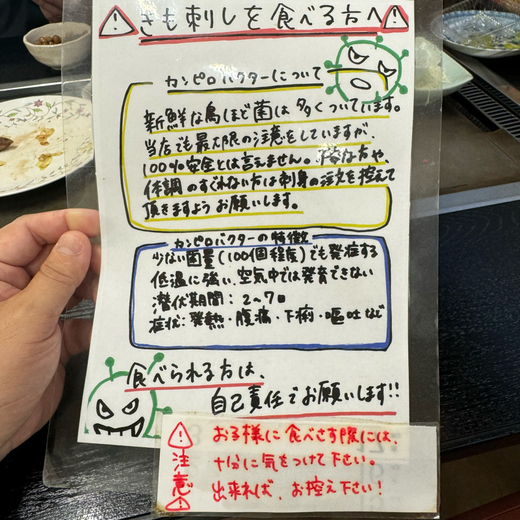 きも刺しを食べる方へ
カンピロバクターについて
新鮮な鳥ほど菌は多くついています。
当店でも最大限の注意をしていますが、
100%安全とは言えません。
体調のすぐれない方は刺身の注文を控えて
頂きますようお願いします。
カンピロバクターの特徴
少ない菌量(100個程度)でも発症する
低温に強い、空気中では発育できない
潜伏期間:2〜7日
症状:発熱・腹痛・下痢・嘔吐など
食べられる方は、
自己責任でお願いします!!
お子様に食べさす際には、
注意
十分に気をつけて下さい。
出来れば、お控え下さい!